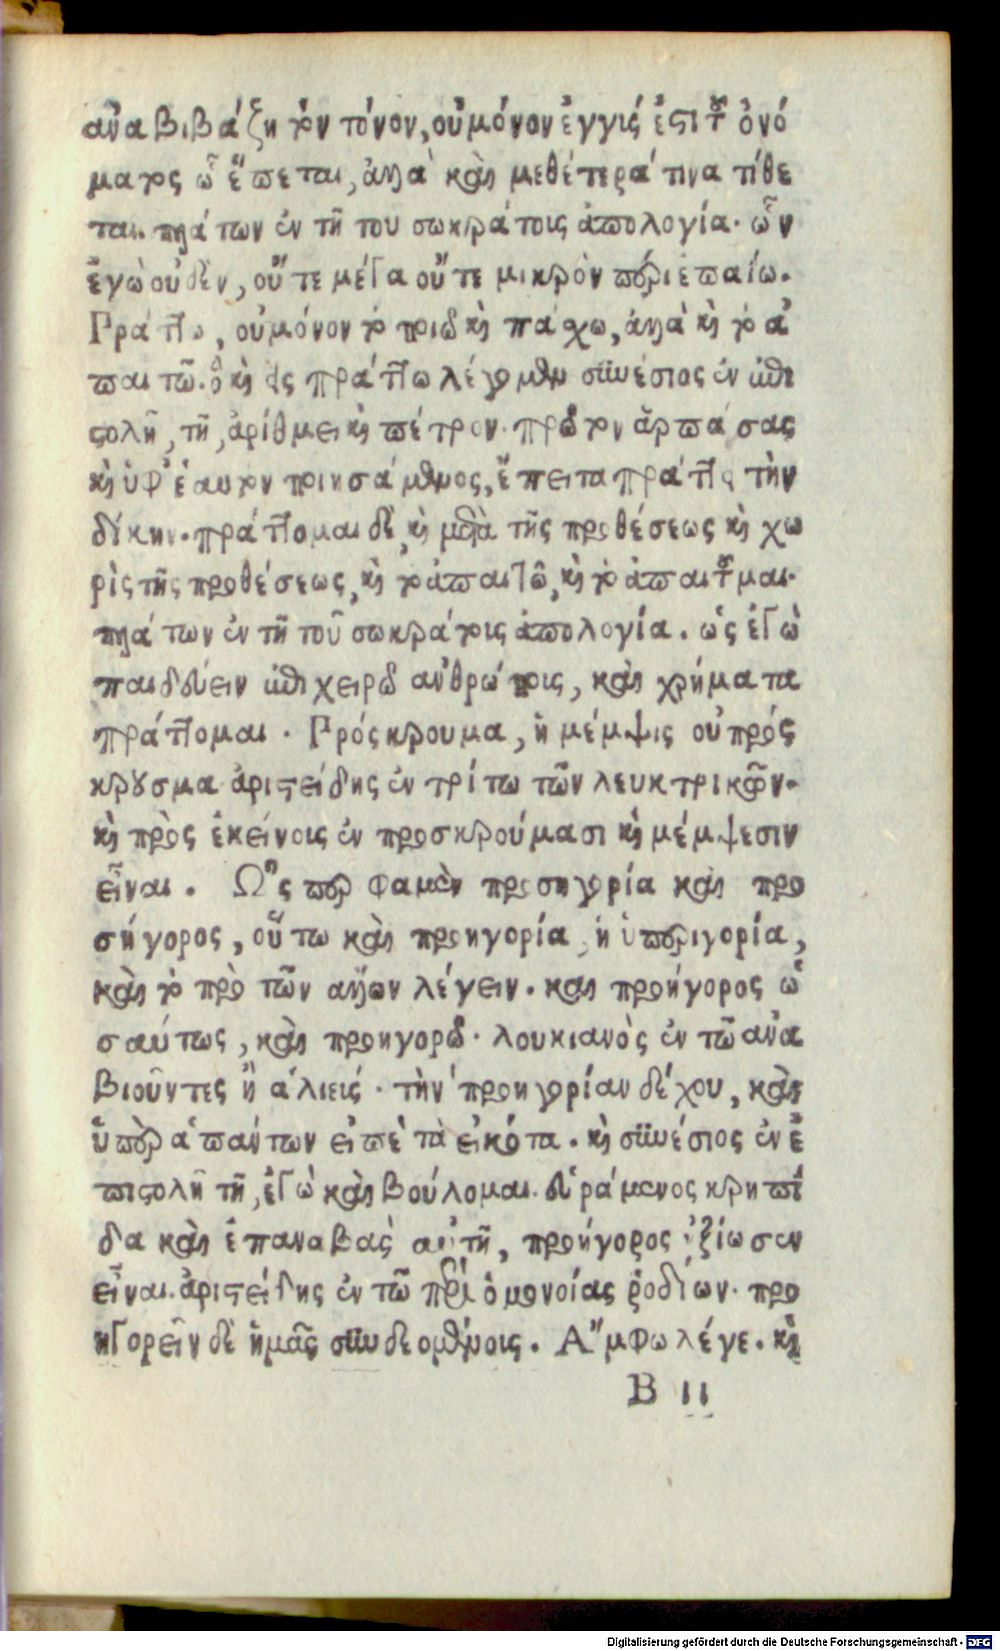 ἀναβιβάζη τὸν τόνον, οὐ μόνον ἐγγίς ἐστι τοῦ ὀνό
ματος ᾧ ἕπεται, ἀλλὰ καὶ μεθέτερά τινα τίθε
ται. πλάτων ἐν τῆ του σωκράτοις ἀπολογία. ὧν
ἐγὼ οὐδὲν, οὔτε μέγα οὔτε μικρὸν πέρι ἐπαίω.
Πράττω, οὐ μόνον τὸ ποιῶ καὶ πάχω, ἀλλὰ καὶ τὸ ἀ
παιτῶ. ὃ καὶ πράττω λέγομεν συνέσιος ἐν ἐπι
στολῆ, τῆ, ἀρίθμει καὶ πέτρον. πρῶτον ἁρπάσας
καὶ ὑφ' ἑαυτὸν ποιησάμενος, ἔπειτα πράττε τὴν
δίκην. πράττομαι δὲ, καὶ μετὰ τῆς προθέσεως καὶ χω
ρὶς τῆς προθέσεως, καὶ τὸ ἀπαιτῶ, καὶ τὸ ἀπαιτοῦμαι.
πλάτων ἐν τῆ τοῦ σωκράτοις ἀπολογία. ὡς ἐγὼ
παιδεύειν ἐπιχειρῶ ἀνθρώποις, καὶ χρήματα
πράττομαι. Πρόσκρουμα, ἡ μέμψις οὐ πρόσ
κρουσμα ἀριστείδης ἐν τρίτω τῶν λευκτρικῶν.
καὶ πρὸς ἐκείνοις ἐν προσκρούμασι καὶ μέμψεσιν
εἶναι. Ὥσπερ φαμὲν προσηγορία καὶ προ
σήγορος, οὕτω καὶ προηγορία, ἡ ὑπεριγορία,
καὶ τὸ πρὸ τῶν ἄλλων λέγειν. καὶ προήγορος ὡ
σαύτως, καὶ προηγορῶ. λουκιανὸς ἐν τῶ ἀνα
βιοῦντες ἢ ἁλιεις. τὴν προηγορίαν δέχου, καὶ
ὑπὲρ ἁπάντων εἰπὲ τὰ εἰκότα. καὶ συνέσιος ἐν ἐ
πιστολῆ τῆ, ἐγὼ καὶ βούλομαι. δειράμενος κρηπῖ
δα καὶ ἐπαναβας αὐτῆ, προήγορος ἠξίωσεν
εἶναι. ἀριστείδης ἐν τῶ περὶ ὁμονοίας ῥοδίων. προ
ηγορεῖν δὲ ἡμᾶς συνδεομένοις. Ἄμφω λέγε. καὶ
B ii
Digitalisierung gefördert durch die Deutsche Forschungsgemeinschaft - DFG